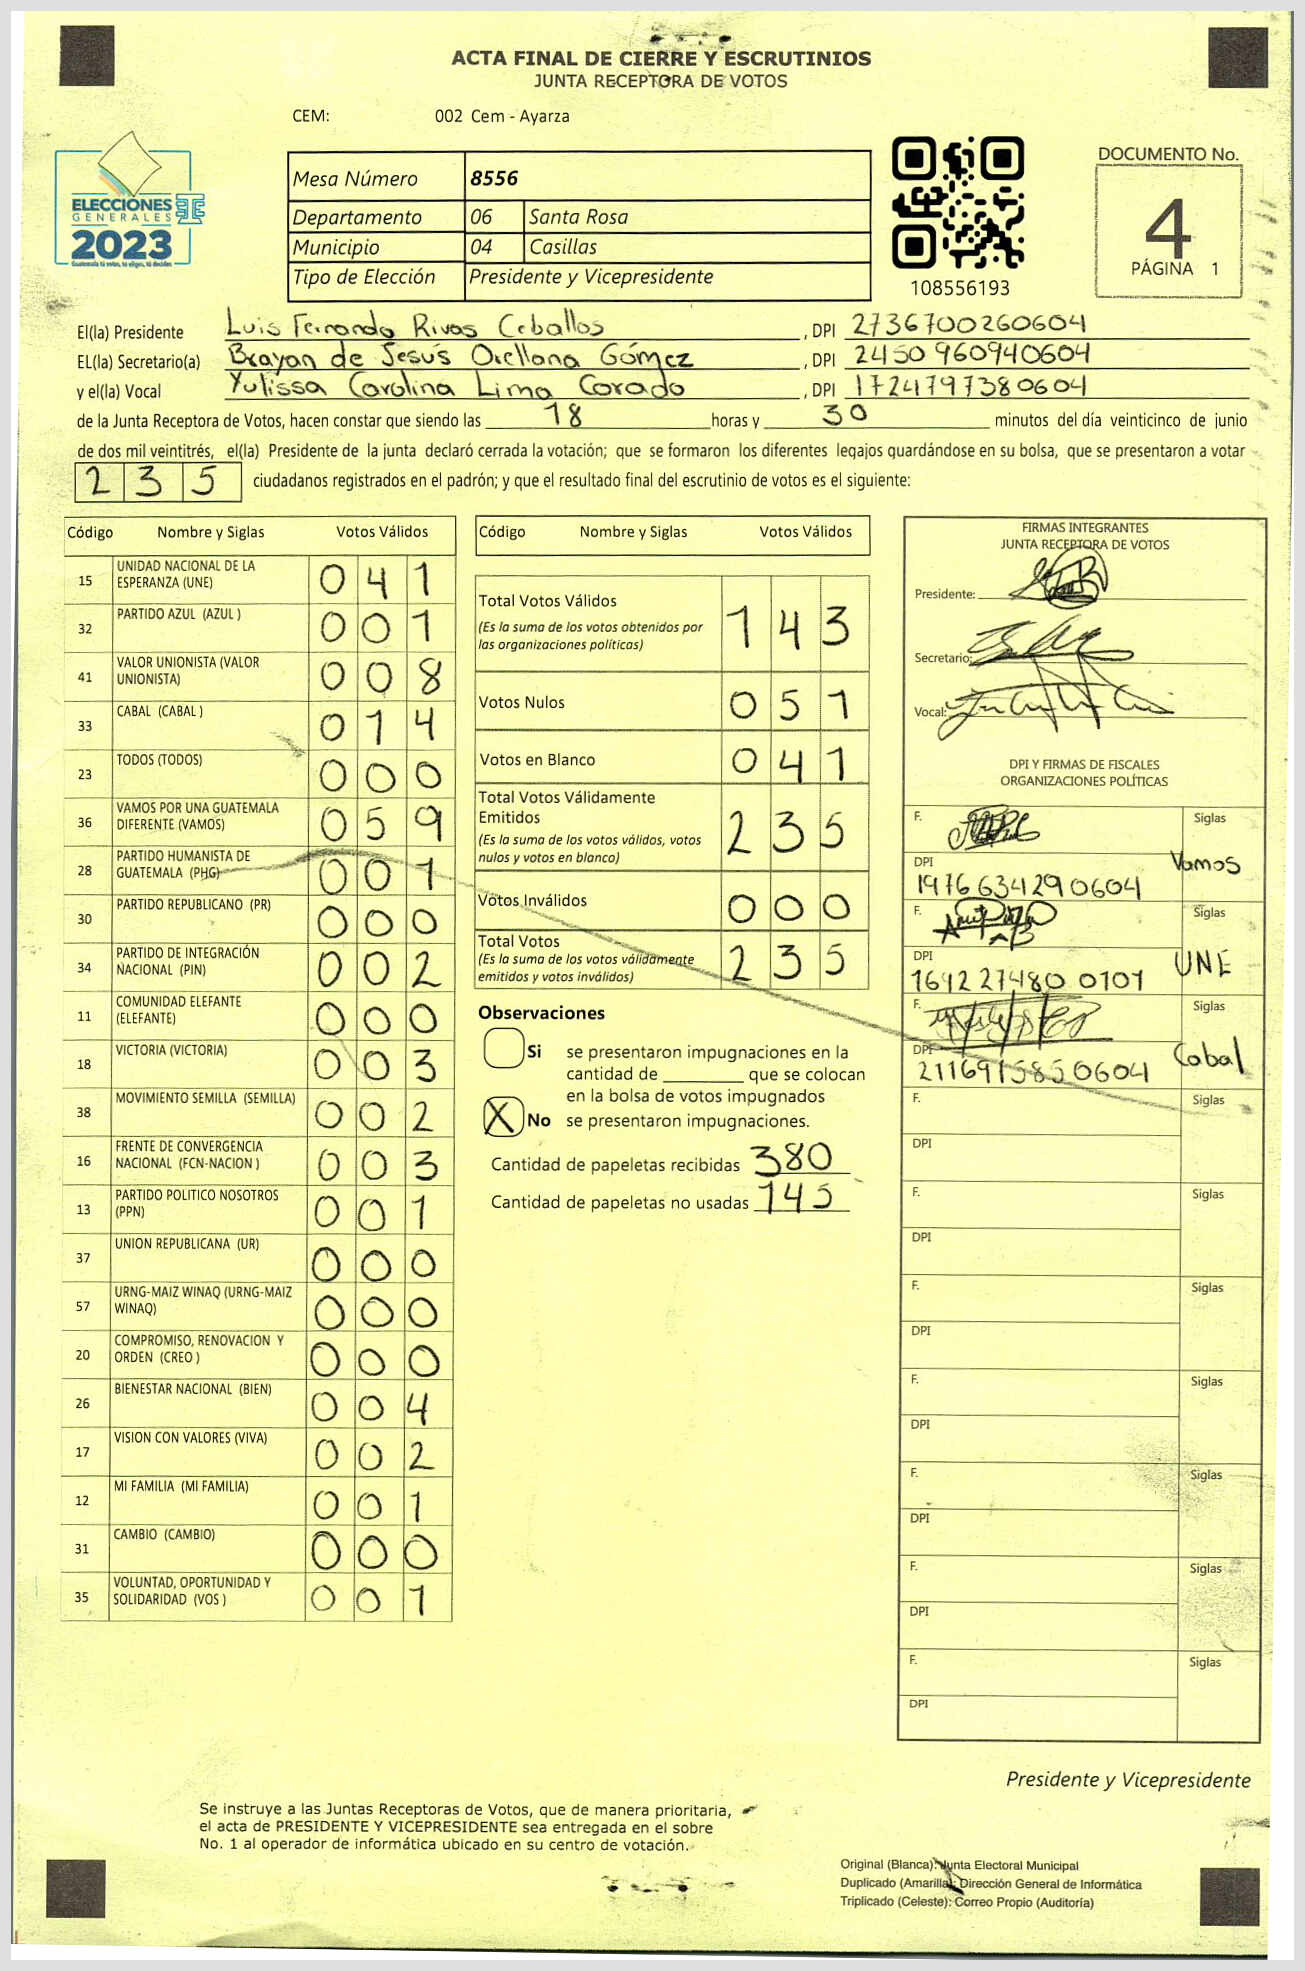 ACTA FINAL DE CIERRE Y ESCRUTINIOS
JUNTA RECEPTORA DE VOTOS
CEM: 002 Cem - Ayarza
ELECCIONES
GENERALES
2023
Guatemala tú votas, tú eliges, tú decides
Mesa Número 8556
Departamento 06 Santa Rosa
Municipio 04 Casillas
Tipo de Elección Presidente y Vicepresidente
108556193
DOCUMENTO No.
4
PÁGINA 1
El(la) Presidente Luis Fernando Rivas Ceballos, DPI 2736700260604
EL(la) Secretario(a) Brayan de Jesús Orellana Gómez, DPI 2450 960940604
y el(la) Vocal Yulissa Carolina Lima Corado, DPI 1724797380604
de la Junta Receptora de Votos, hacen constar que siendo las 18 horas y 30 minutos del día veinticinco de junio
de dos mil veintitrés, el(la) Presidente de la junta declaró cerrada la votación; que se formaron los diferentes legajos guardándose en su bolsa, que se presentaron a votar
235 ciudadanos registrados en el padrón; y que el resultado final del escrutinio de votos es el siguiente:
Código Nombre y Siglas Votos Válidos
15 UNIDAD NACIONAL DE LA
ESPERANZA (UNE) 041
32 PARTIDO AZUL (AZUL ) 001
41 VALOR UNIONISTA (VALOR
UNIONISTA) 008
33 CABAL (CABAL ) 014
23 TODOS (TODOS) 000
36 VAMOS POR UNA GUATEMALA
DIFERENTE (VAMOS) 059
28 PARTIDO HUMANISTA DE
GUATEMALA (PHG) 001
30 PARTIDO REPUBLICANO (PR) 000
34 PARTIDO DE INTEGRACIÓN
NACIONAL (PIN) 002
11 COMUNIDAD ELEFANTE
(ELEFANTE) 000
18 VICTORIA (VICTORIA) 003
38 MOVIMIENTO SEMILLA (SEMILLA) 002
16 FRENTE DE CONVERGENCIA
NACIONAL (FCN-NACION ) 003
13 PARTIDO POLITICO NOSOTROS
(PPN) 001
37 UNION REPUBLICANA (UR) 000
57 URNG-MAIZ WINAQ (URNG-MAIZ
WINAQ) 000
20 COMPROMISO, RENOVACION Y
ORDEN (CREO ) 000
26 BIENESTAR NACIONAL (BIEN) 004
17 VISION CON VALORES (VIVA) 002
12 MI FAMILIA (MI FAMILIA) 001
31 CAMBIO (CAMBIO) 000
35 VOLUNTAD, OPORTUNIDAD Y
SOLIDARIDAD (VOS ) 001
Código Nombre y Siglas Votos Válidos
Total Votos Válidos 143
(Es la suma de los votos obtenidos por
las organizaciones políticas)
Votos Nulos 051
Votos en Blanco 041
Total Votos Válidamente
Emitidos 235
(Es la suma de los votos válidos, votos
nulos y votos en blanco)
Votos Inválidos 000
Total Votos 235
(Es la suma de los votos válidamente
emitidos y votos inválidos)
Observaciones
Si se presentaron impugnaciones en la
cantidad de ________ que se colocan
en la bolsa de votos impugnados
X No se presentaron impugnaciones.
Cantidad de papeletas recibidas 380
Cantidad de papeletas no usadas 145
FIRMAS INTEGRANTES
JUNTA RECEPTORA DE VOTOS
Presidente:
Secretario:
Vocal:
DPI Y FIRMAS DE FISCALES
ORGANIZACIONES POLÍTICAS
F. Siglas
DPI Vamos
1976634290604
F. Siglas
DPI UNE
1642 27480 0101
F. Siglas
DPI Cabal
2116915850604
F. Siglas
DPI
F. Siglas
DPI
F. Siglas
DPI
F. Siglas
DPI
F. Siglas
DPI
F. Siglas
DPI
F. Siglas
DPI
Presidente y Vicepresidente
Se instruye a las Juntas Receptoras de Votos, que de manera prioritaria,
el acta de PRESIDENTE Y VICEPRESIDENTE sea entregada en el sobre
No. 1 al operador de informática ubicado en su centro de votación.
Original (Blanca): Junta Electoral Municipal
Duplicado (Amarilla): Dirección General de Informática
Triplicado (Celeste): Correo Propio (Auditoría)